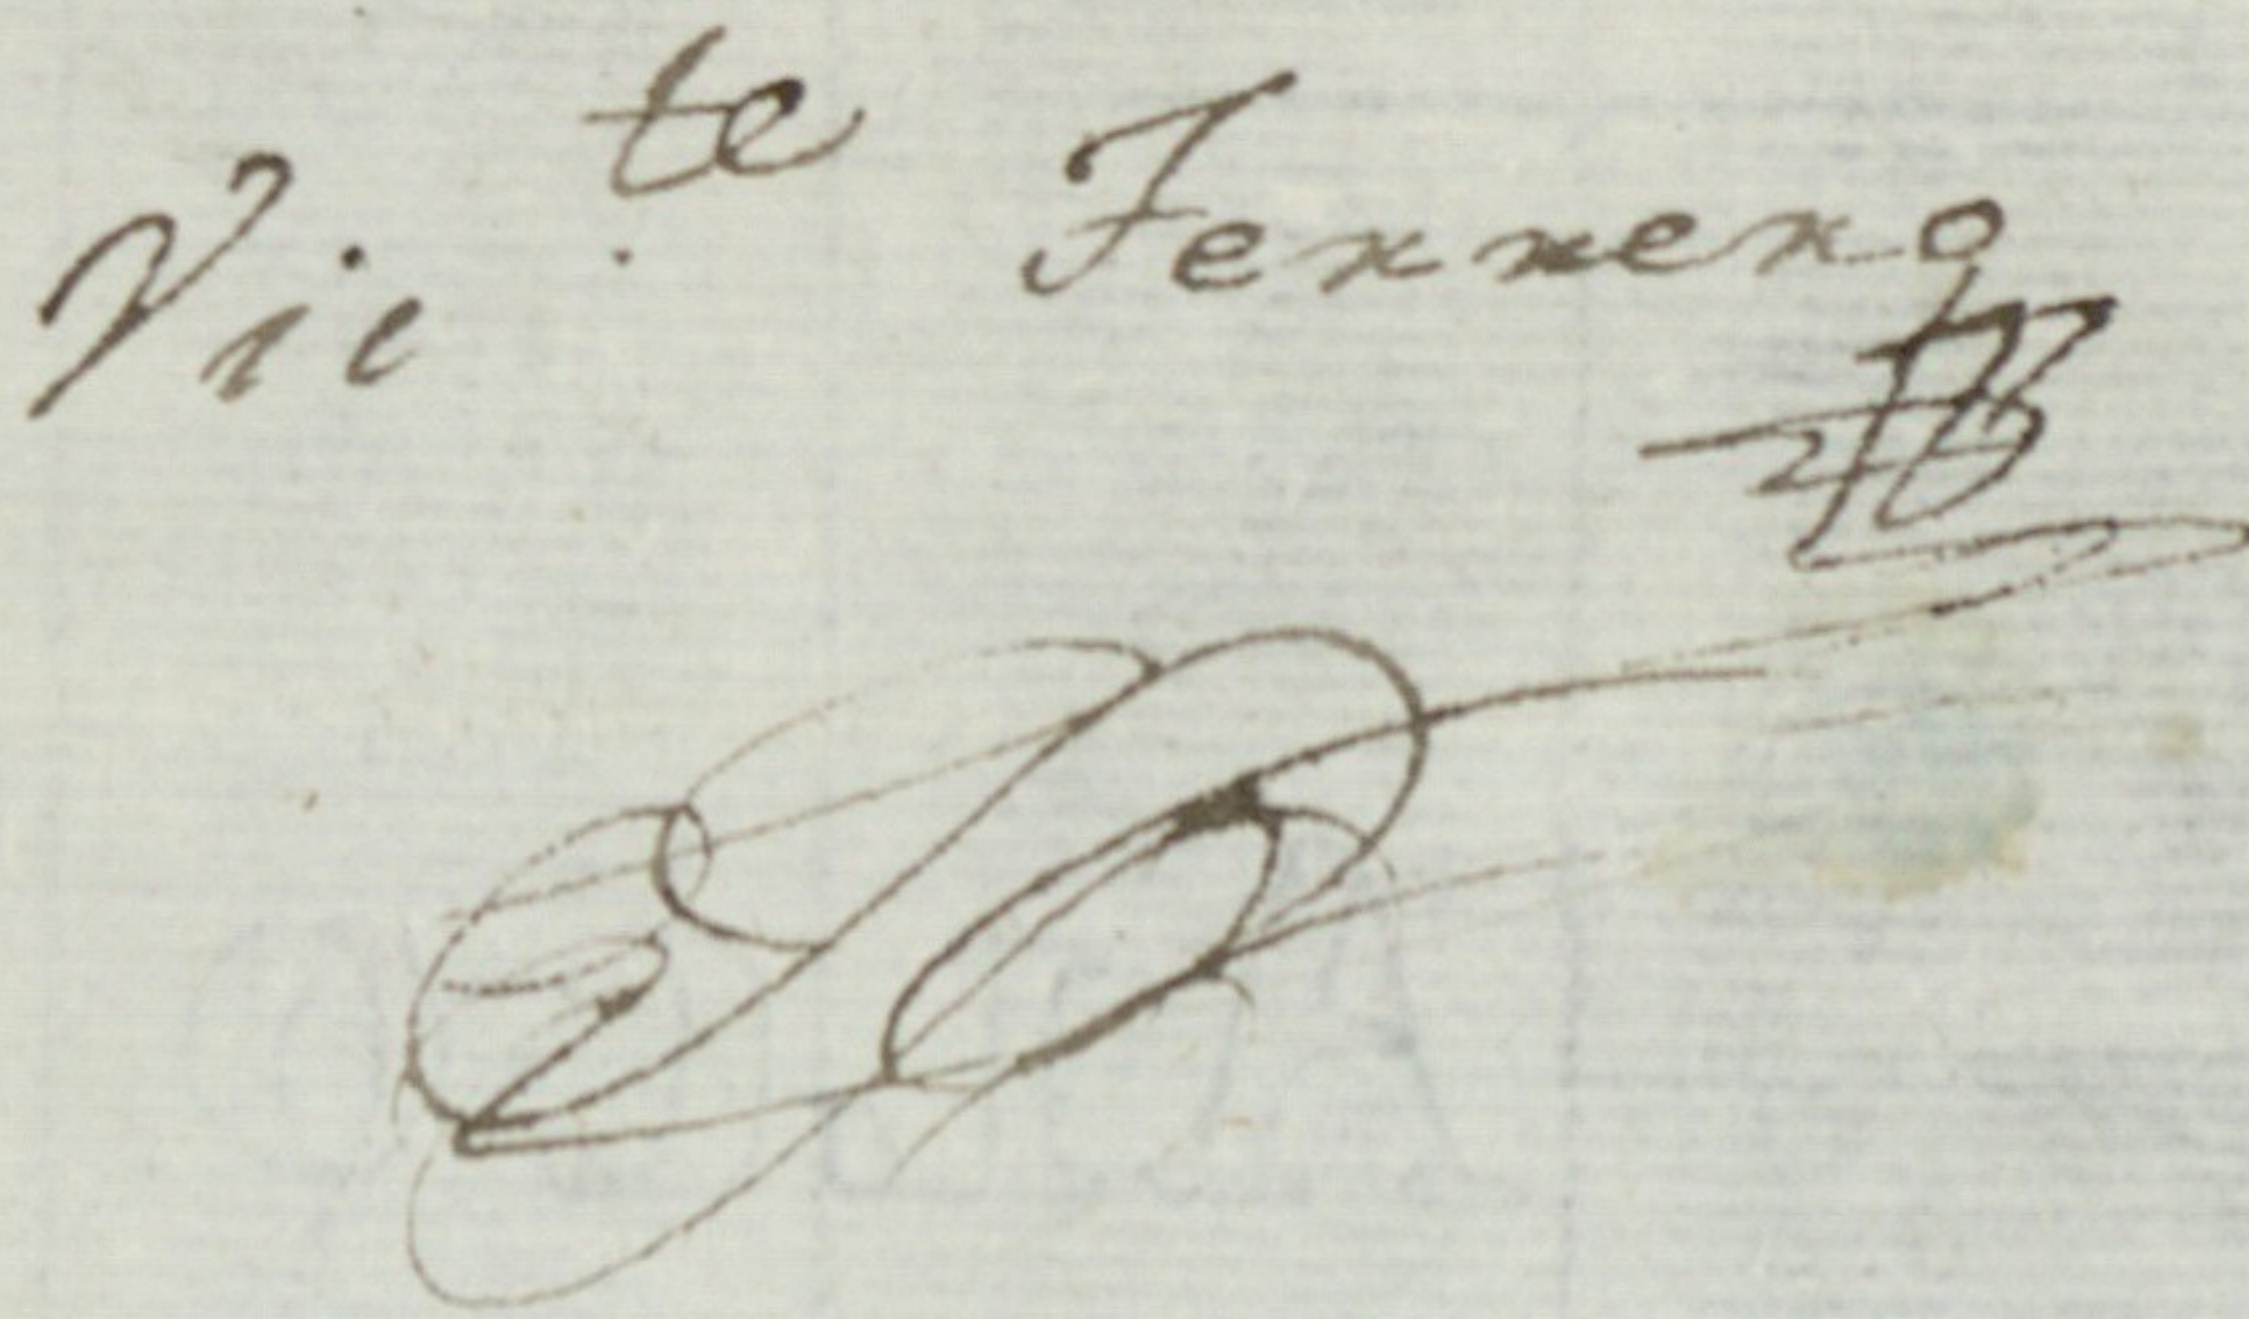 Vic.te Ferrero